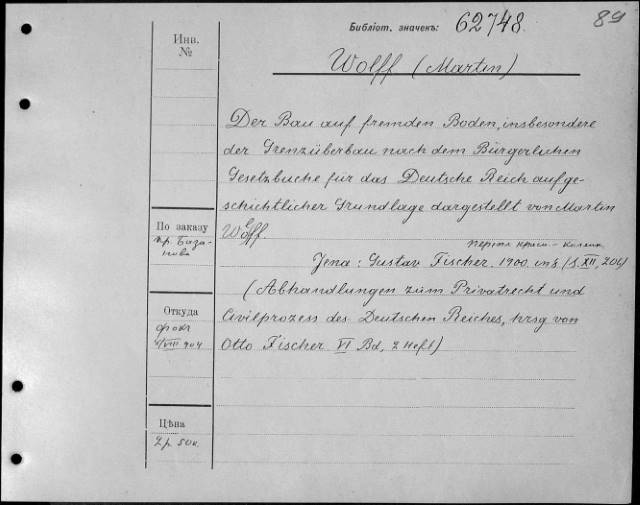 Библіот. значекъ: 62748.
89
Инв.
№
Wolff (Martin)
Der Bau auf fremden Boden, insbesondere
der Grenzüberbau nach dem Bürgerlichen
Gesetzbuche für das Deutsche Reich auf ge-
schichtlicher Grundlage dargestellt von Martin
Wolff.
По заказу
пр. База-
нова
Jena: Gustav Fischer. 1900. in 8 (S. XII, 204)
(Abhandlungen zum Privatrecht und
Civilprozess des Deutschen Reiches, hrsg von
Otto Fischer VI Bd, 2 Heft)
Откуда
VIII 904
Цѣна
2 р. 50 к.